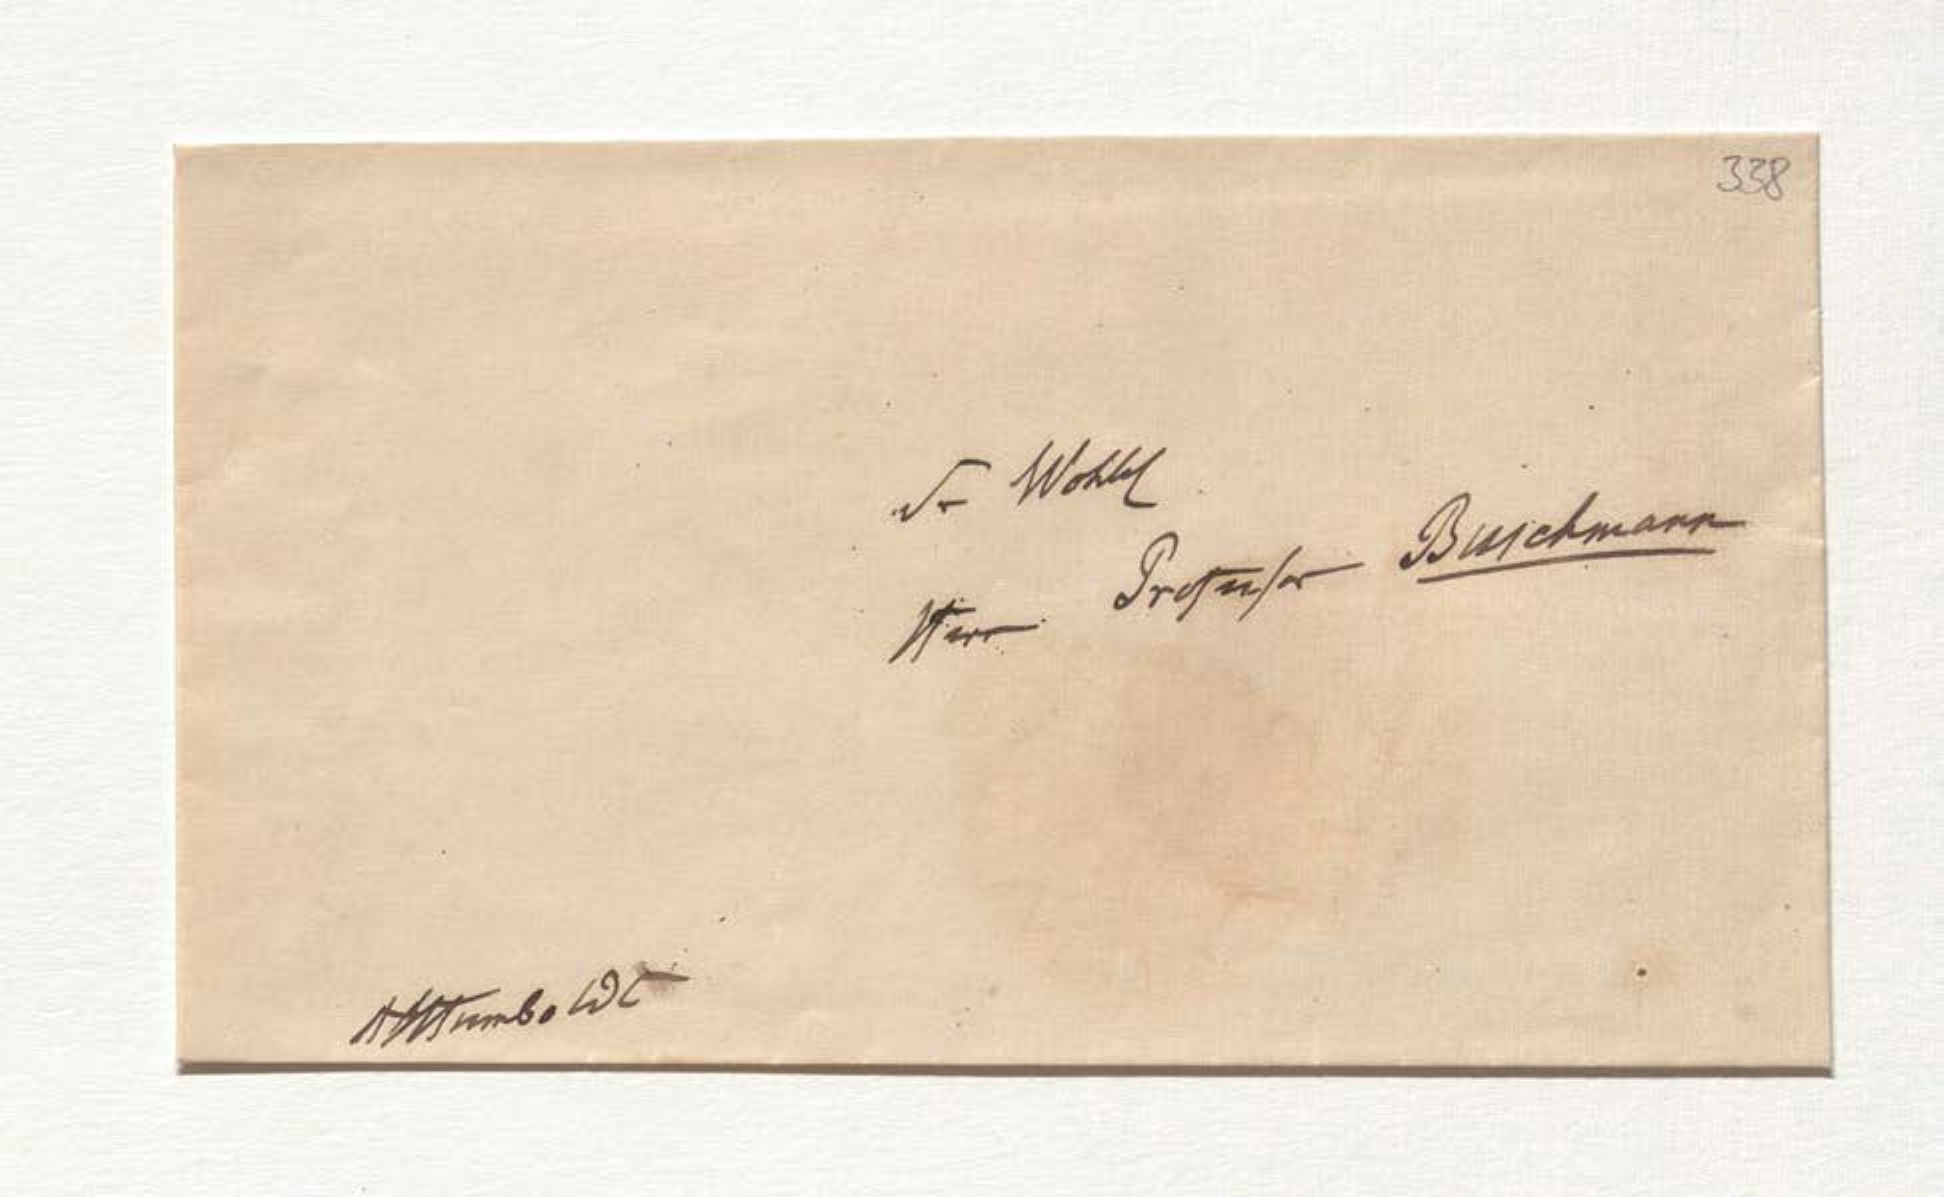 338
Sr Wohlg
Herrn Professor Buschmann
AvHumboldt